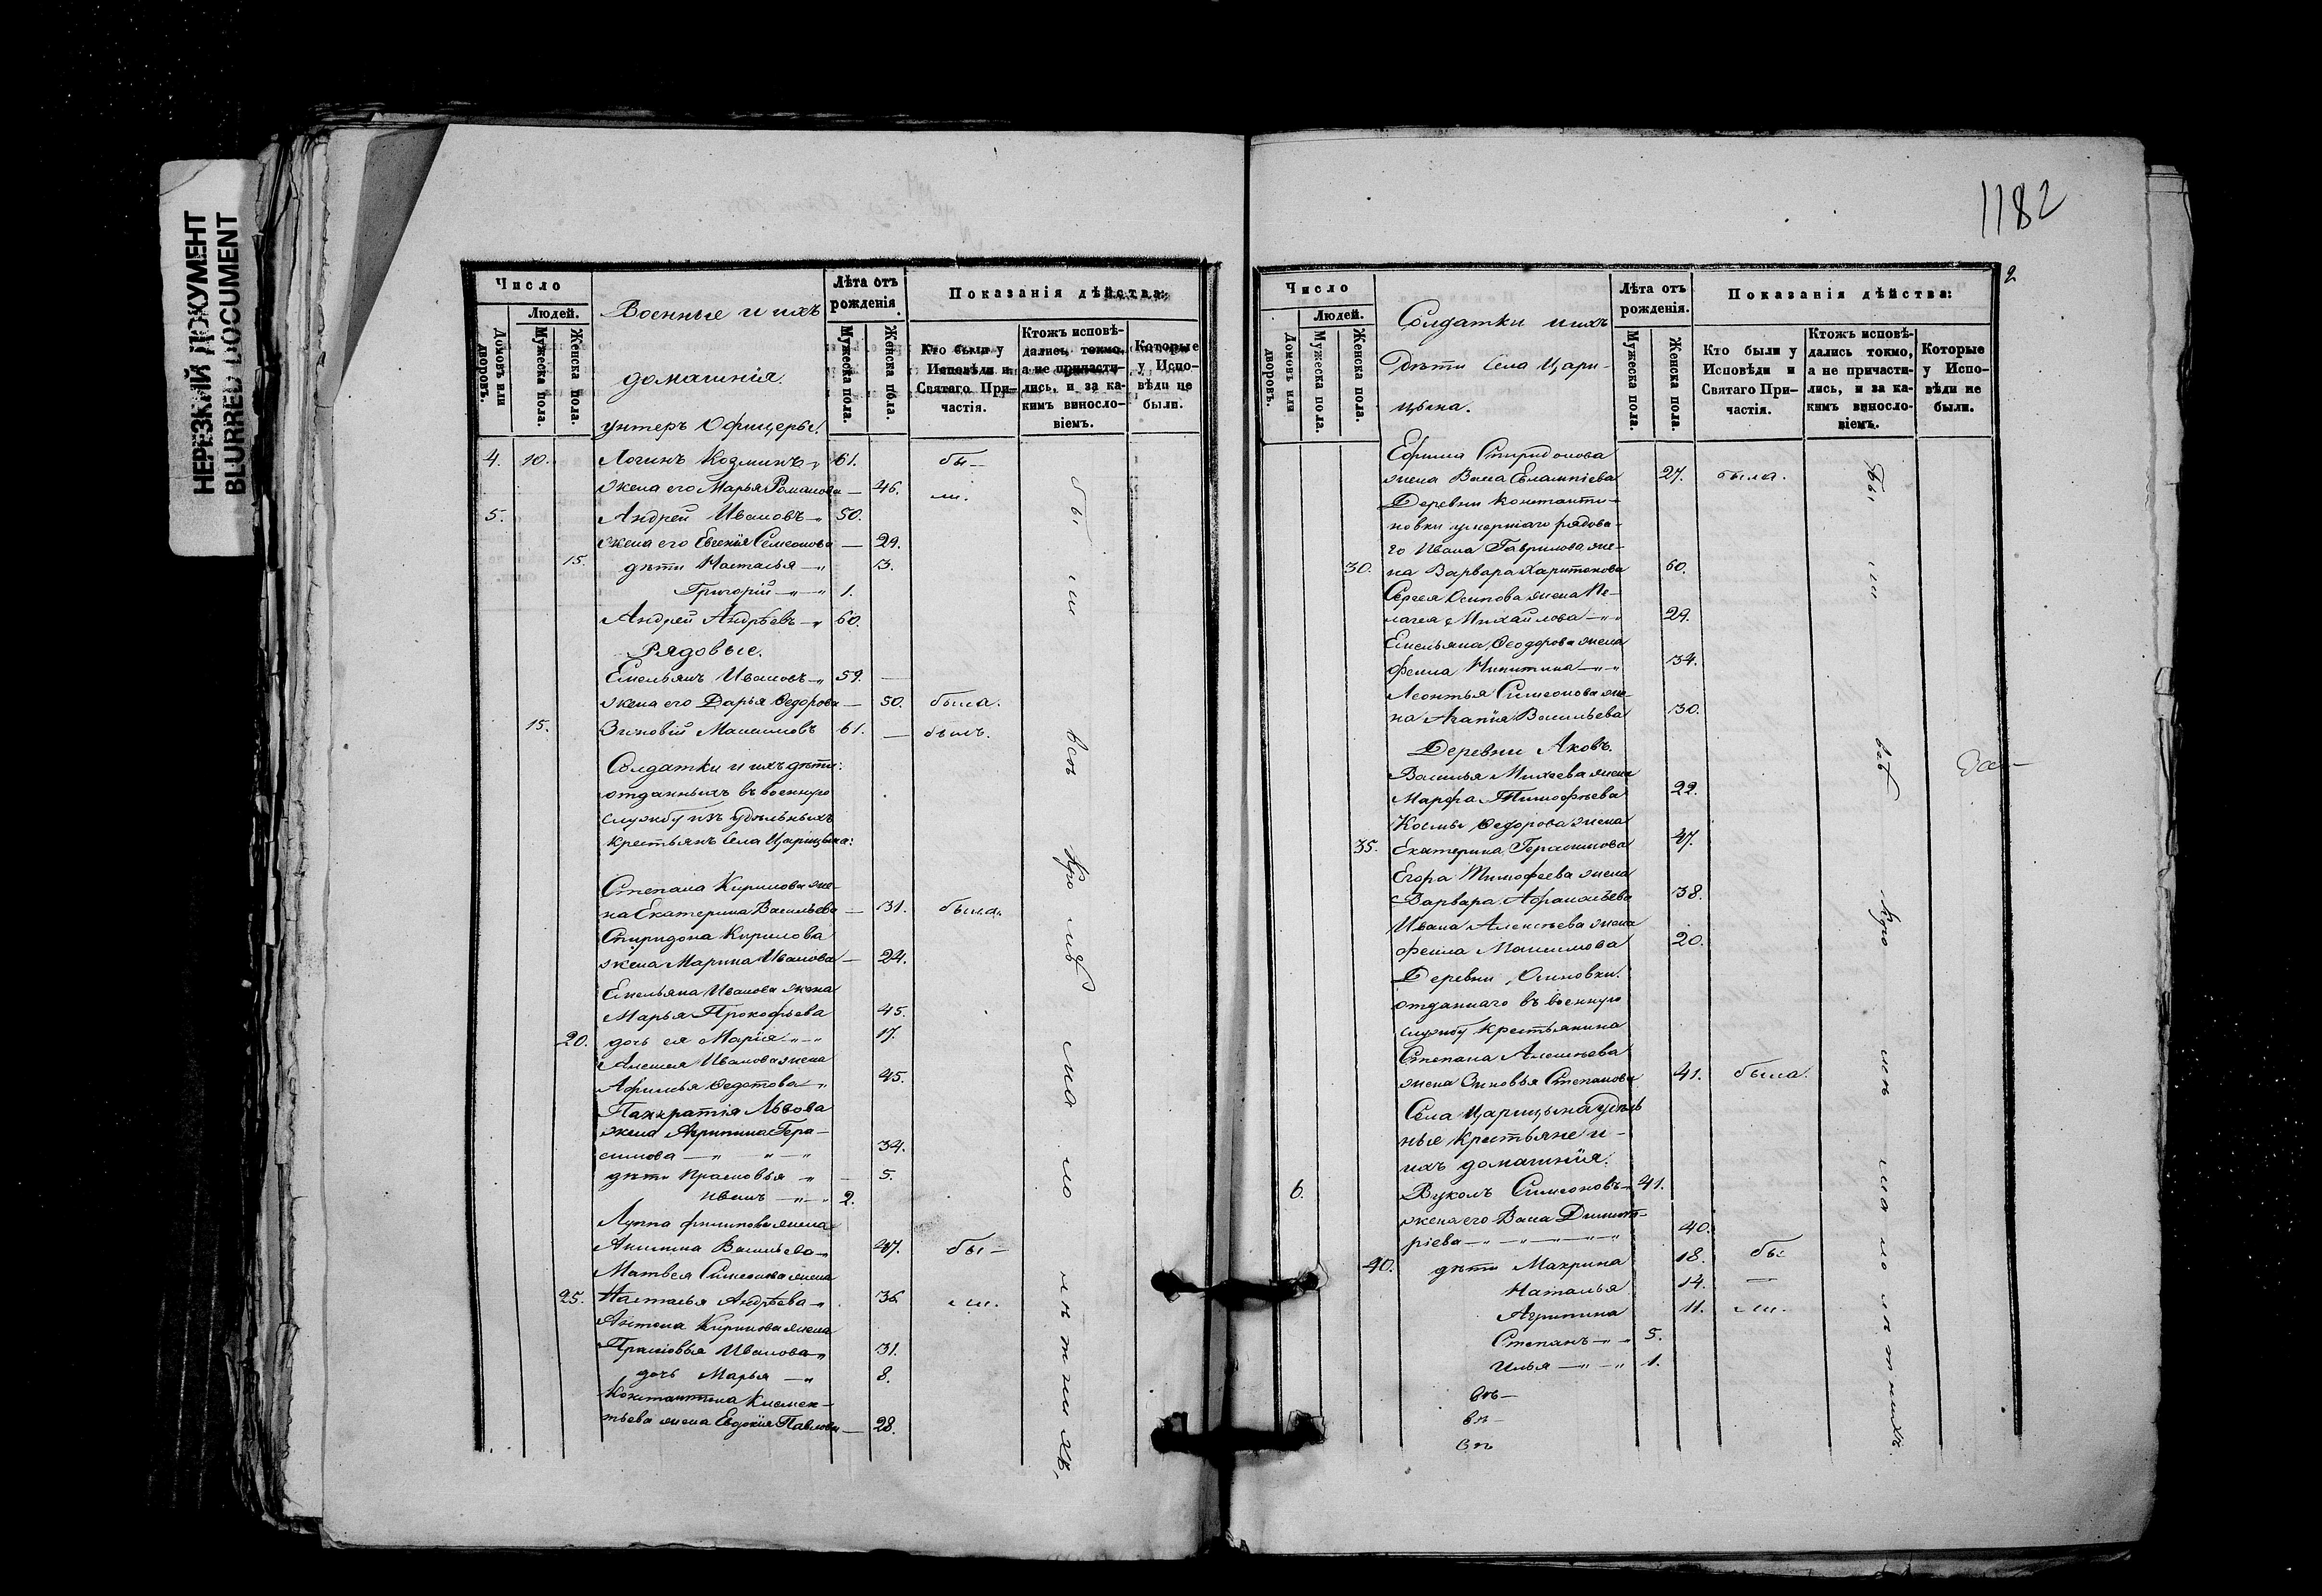 НЕРЕЗКИЙ ДОКУМЕНТ
BLURRED DOCUMENT
Число
Людей.
Домовъ или дворовъ.
Мужеска пола.
Женска пола.
Военные и ихъ
домашнія.
унтеръ Офицеры.
Лѣта отъ рожденія.
Мужеска пола.
Женска пола.
Показанія дѣйства:
Кто были у Исповѣди и Святаго Причастія.
Ктожъ исповѣдались токмо, а не причастились, и за какимъ винословіемъ.
Которые у Исповѣди не были.
4. 10. Логинъ Козминъ 61. бы-
жена его Марья Романова — 46. ли.
5. Андрей Ивановъ 50.
жена его Евгенія Семеонова — 29.
15. дѣти Наталья 3.
Григорій 1.
Андрей Андрѣевъ 60.
Рядовые.
Емельянъ Ивановъ 59. —
жена его Дарья Ѳедорова — 50. была.
15. Зиновій Максимовъ 61. — былъ.
Солдатки и ихъ дѣти:
отданныхъ въ военную
службу изъ удѣльныхъ
крестьянъ Села Царицына:
Степана Кирилова же-
на Екатерина Васильева — 31. была.
Спиридона Кирилова
жена Марина Иванова — 24.
Емельяна Иванова жена
Марья Прокофьева 45.
20. дочь ея Марія 17.
Алексея Иванова жена
Афимья Ѳедотова 45.
Панкратія Львова
жена Агрипина Гера-
симова 34.
дѣти Прасковья — 5.
Иванъ 2.
Луппа Филипова жена
Акилина Васильева 47. бы-
Матвея Симеонова жена
25. Наталья Андрѣева 36. ли.
Антона Кирилова жена
Прасковья Иванова 31.
дочь Марья 8.
Константина Клемен-
тьева жена Евдокія Павлова — 28.
1182
2
Число
Людей.
Домовъ или дворовъ.
Мужеска пола.
Женска пола.
Солдатки и ихъ
дѣти Села Цари-
цына.
Лѣта отъ рожденія.
Мужеска пола.
Женска пола.
Показанія дѣйства:
Кто были у Исповѣди и Святаго Причастія.
Ктожъ исповѣдались токмо, а не причастились, и за какимъ винословіемъ.
Которые у Исповѣди не были.
Ефима Спиридонова
жена Васа Евлампіева 27. была.
Деревни Константи-
новки умершаго рядова-
го Ивана Гаврилова же-
30. на Варвара Харитонова 60.
Сергея Осипова жена Пе-
лагея Михайлова 29.
Емельяна Ѳеодорова жена
Фекла Никитина 34.
Леонтья Симеонова же-
на Агапія Васильева 30.
Деревни Аковъ.
Василья Михеева жена
Марфа Тимофѣева 22.
Космы Ѳедорова жена
35. Екатерина Герасимова 47.
Егора Тимофеева жена
Варвара Афанасьева 38.
Ивана Алексѣева жена
Фекла Максимова 20.
Деревни Осиновки.
отданнаго въ военную
службу крестьянина
Степана Алексѣева
жена Зиновья Степанова 41. была.
Села Царицына удѣль
ные крестьяне и
ихъ домашнія.
6. Вуколъ Симеоновъ 41.
жена его Васа Димит-
ріева 40.
40. дѣти Макрина 18. бы
Наталья 14. —
Агрипина 11. ли.
Степанъ 5.
Илья 1.